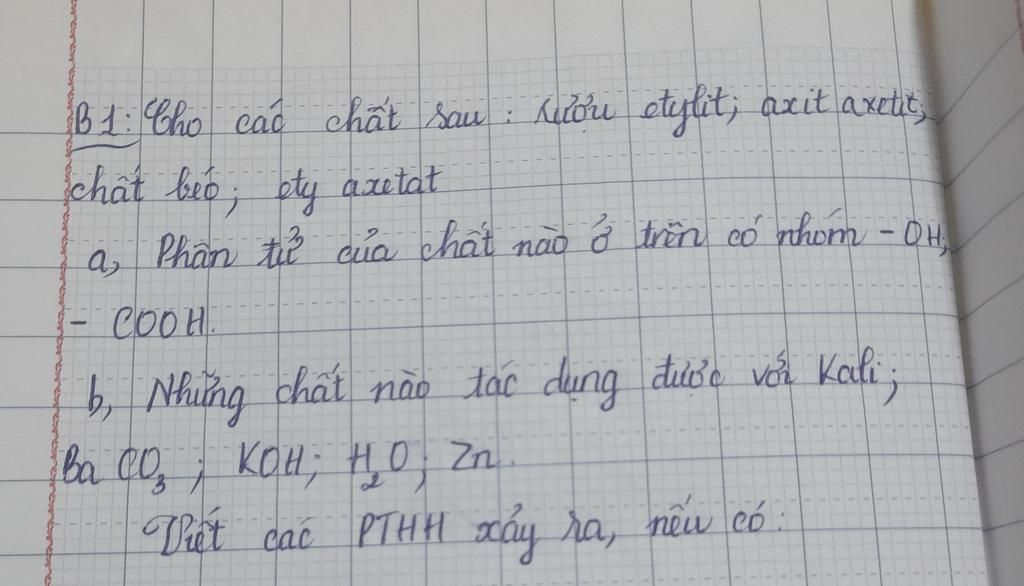 B1: Cho các chất sau: rượu etylit; axit axetit;
chất béo; ety axetat
a, Phân tử của chất nào ở trên có nhóm - OH;
- COOH.
b, Những chất nào tác dụng được với Kali;
BaCO₃; KOH; H₂O; Zn.
Viết các PTHH xảy ra, nếu có: